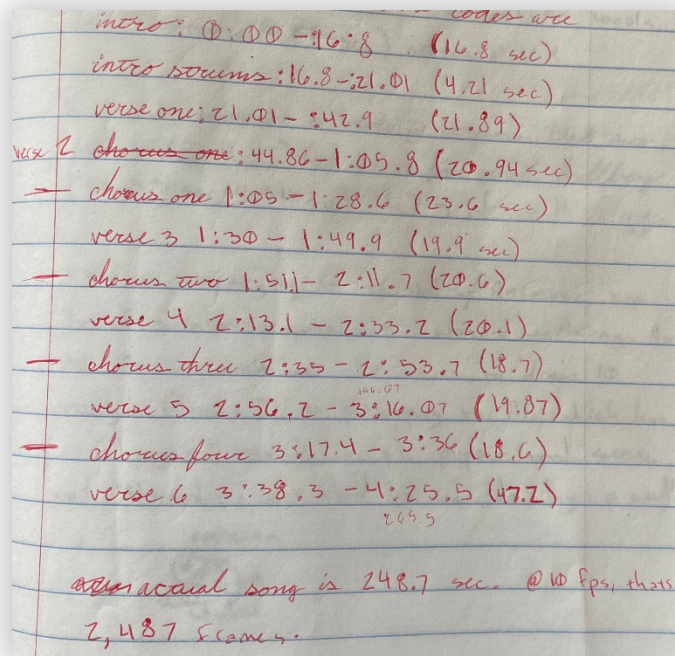 codes are
intro: 0:00 - :16.8 (16.8 sec)
intro strums :16.8 - :21.01 (4.21 sec)
verse one: 21.01 - :42.9 (21.89)
verse 2 chorus one : 44.86 - 1:05.8 (20.94 sec)
chorus one 1:05 - 1:28.6 (23.6 sec)
verse 3 1:30 - 1:49.9 (19.9 sec)
chorus two 1:51.1 - 2:11.7 (20.6)
verse 4 2:13.1 - 2:33.2 (20.1)
chorus three 2:35 - 2:53.7 (18.7)
verse 5 2:56.2 - 3:16.07 (19.87)
chorus four 3:17.4 - 3:36 (18.6)
verse 6 3:38.3 - 4:25.5 (47.2)
265.5
acaual song is 248.7 sec. @ 10 fps, thats
2,487 frames.